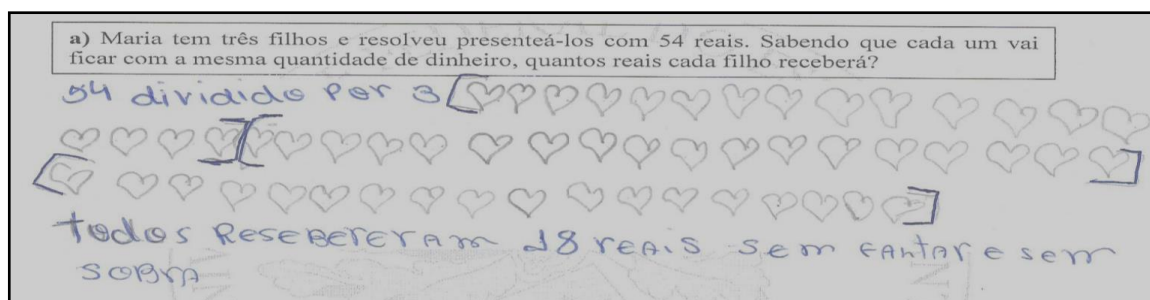 a) Maria tem três filhos e resolveu presenteá-los com 54 reais. Sabendo que cada um vai
ficar com a mesma quantidade de dinheiro, quantos reais cada filho receberá?
54 dividido por 3
todos RESEBERERAm 18 reais sem fAntAr e sem
SOBRA